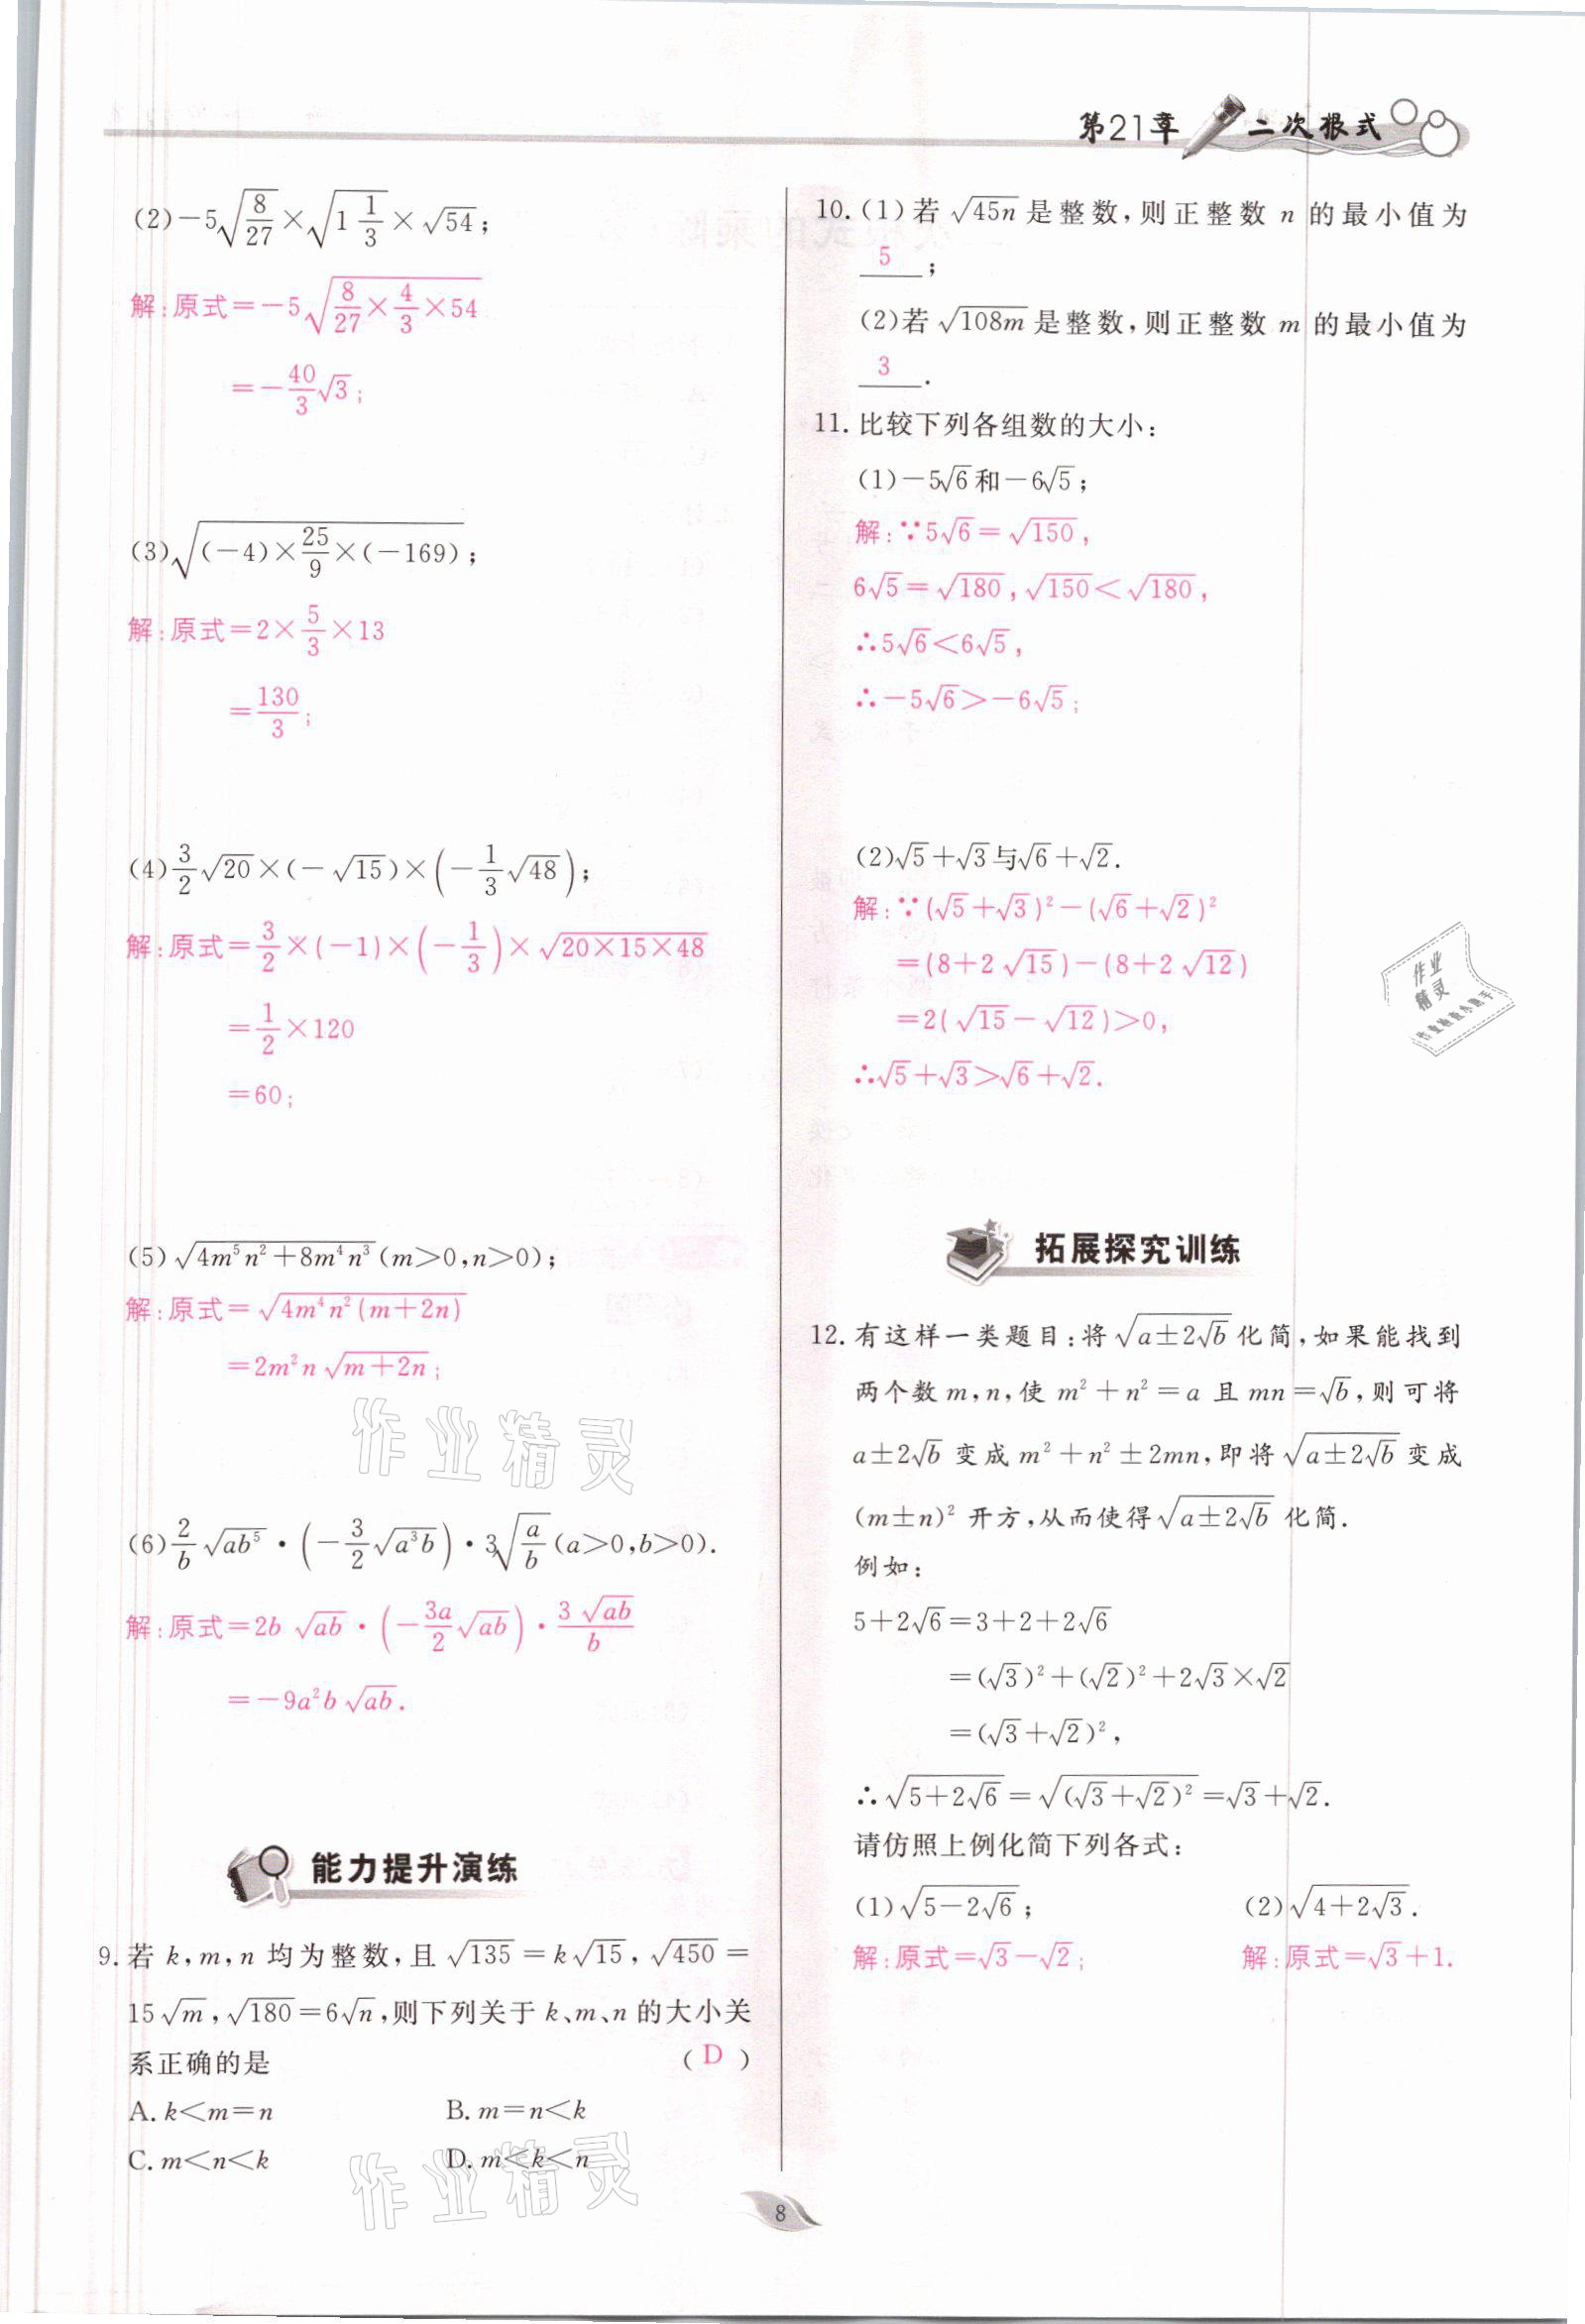 第21章 二次根式
(2)-5√(8/27)×√(1 1/3)×√54;
解:原式=-5√(8/27×4/3×54)
=-40/3√3;
(3)√((-4)×25/9×(-169));
解:原式=2×5/3×13
=130/3;
(4)3/2√20×(-√15)×(-1/3√48);
解:原式=3/2×(-1)×(-1/3)×√(20×15×48)
=1/2×120
=60;
(5)√(4m⁵n²+8m⁴n³)(m>0,n>0);
解:原式=√(4m⁴n²(m+2n))
=2m²n√(m+2n);
(6)2/b√(ab⁵)·(-3/2√(a³b))·3√(a/b)(a>0,b>0).
解:原式=2b√(ab)·(-3a/2√(ab))·3√(ab)/b
=-9a²b√(ab).
能力提升演练
9.若k,m,n均为整数,且√135=k√15,√450=
15√m,√180=6√n,则下列关于k、m、n的大小关
系正确的是 ( D )
A.k<m=n B.m=n<k
C.m<n<k D.m<k<n
10.(1)若√(45n)是整数,则正整数n的最小值为
5;
(2)若√(108m)是整数,则正整数m的最小值为
3.
11.比较下列各组数的大小:
(1)-5√6和-6√5;
解:∵5√6=√150,
6√5=√180,√150<√180,
∴5√6<6√5,
∴-5√6>-6√5;
(2)√5+√3与√6+√2.
解:∵(√5+√3)²-(√6+√2)²
=(8+2√15)-(8+2√12)
=2(√15-√12)>0,
∴√5+√3>√6+√2.
拓展探究训练
12.有这样一类题目:将√(a±2√b)化简,如果能找到
两个数m,n,使m²+n²=a且mn=√b,则可将
a±2√b变成m²+n²±2mn,即将√(a±2√b)变成
(m±n)²开方,从而使得√(a±2√b)化简.
例如:
5+2√6=3+2+2√6
=(√3)²+(√2)²+2√3×√2
=(√3+√2)²,
∴√(5+2√6)=√((√3+√2)²)=√3+√2.
请仿照上例化简下列各式:
(1)√(5-2√6); (2)√(4+2√3).
解:原式=√3-√2; 解:原式=√3+1.
作业
精灵
作业精灵
作业精灵
8